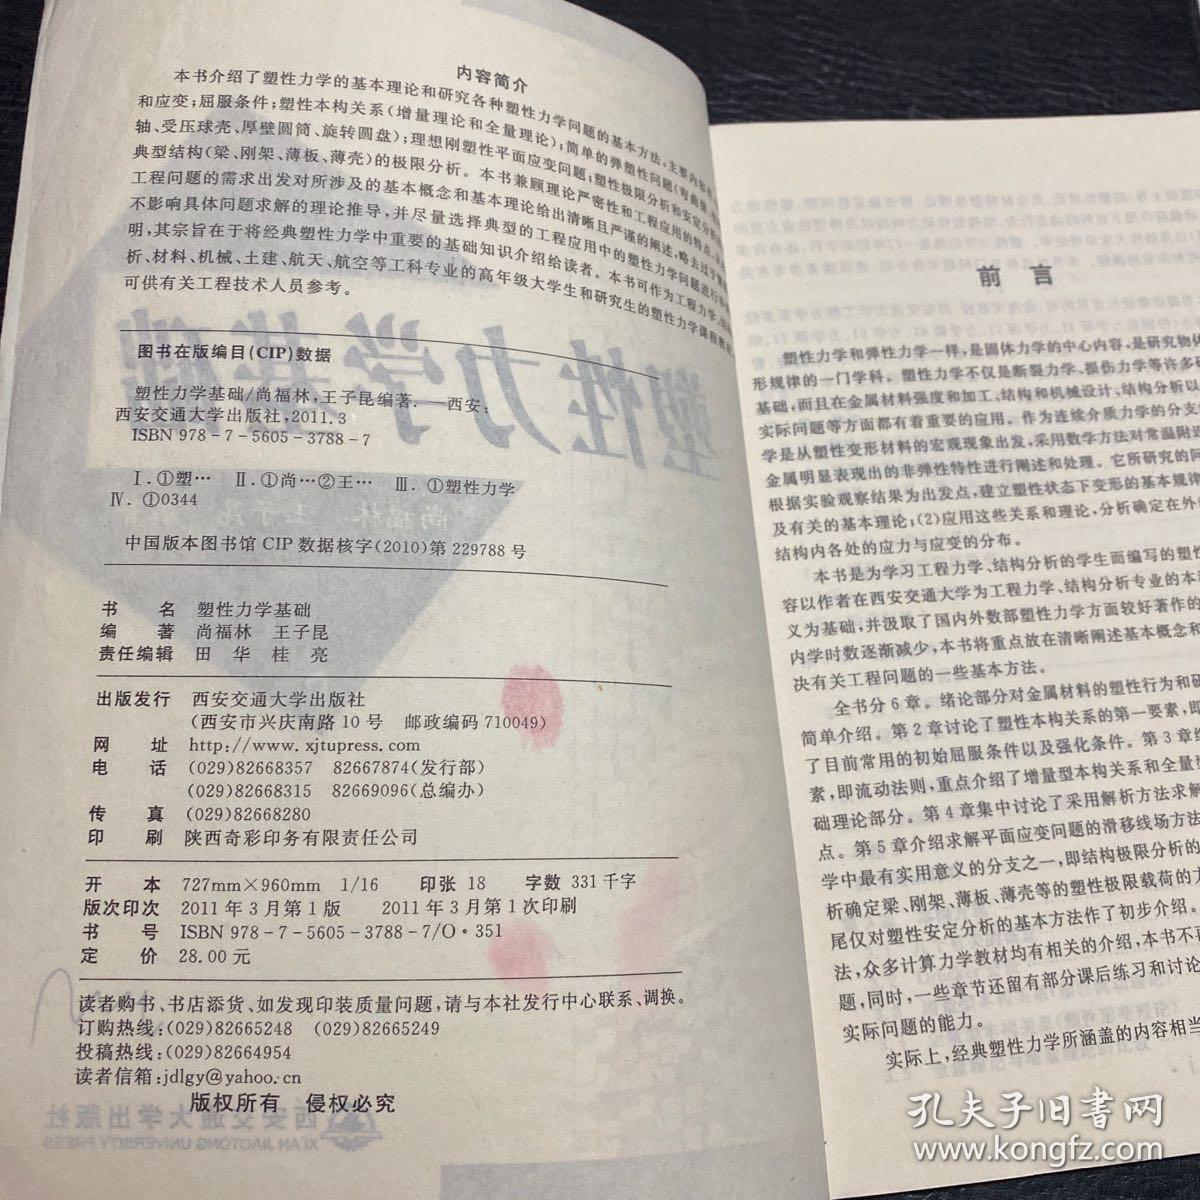 内容简介
本书介绍了塑性力学的基本理论和研究各种塑性力学问题的基本方法,主要内容
和应变;屈服条件;塑性本构关系(增量理论和全量理论);简单的弹塑性问题(弯曲梁
轴、受压球壳、厚壁圆筒、旋转圆盘);理想刚塑性平面应变问题;塑性极限分析和安定分析
典型结构(梁、刚架、薄板、薄壳)的极限分析。本书兼顾理论严密性和工程应用的特点
工程问题的需求出发对所涉及的基本概念和基本理论给出清晰且严谨的阐述,略去过于
不影响具体问题求解的理论推导,并尽量选择典型的工程应用中的塑性力学问题进行
明,其宗旨在于将经典塑性力学中重要的基础知识介绍给读者。本书可作为工程力学
析、材料、机械、土建、航天、航空等工科专业的高年级大学生和研究生的塑性力学课程教
可供有关工程技术人员参考。
图书在版编目(CIP)数据
塑性力学基础/尚福林,王子昆编著.—西安:
西安交通大学出版社,2011.3
ISBN 978-7-5605-3788-7
Ⅰ.①塑… Ⅱ.①尚…②王… Ⅲ.①塑性力学
Ⅳ.①O344
中国版本图书馆CIP数据核字(2010)第229788号
书 名 塑性力学基础
编 著 尚福林 王子昆
责任编辑 田 华 桂 亮
出版发行 西安交通大学出版社
(西安市兴庆南路10号 邮政编码710049)
网 址 http://www.xjtupress.com
电 话 (029)82668357 82667874(发行部)
(029)82668315 82669096(总编办)
传 真 (029)82668280
印 刷 陕西奇彩印务有限责任公司
开 本 727mm×960mm 1/16 印张 18 字数 331千字
版次印次 2011年3月第1版 2011年3月第1次印刷
书 号 ISBN 978-7-5605-3788-7/O·351
定 价 28.00元
读者购书、书店添货、如发现印装质量问题,请与本社发行中心联系、调换。
订购热线:(029)82665248 (029)82665249
投稿热线:(029)82664954
读者信箱:jdlgy@yahoo.cn
版权所有 侵权必究
前 言
塑性力学和弹性力学一样,是固体力学的中心内容,是研究物体
形规律的一门学科。塑性力学不仅是断裂力学、损伤力学等许多
基础,而且在金属材料强度和加工、结构和机械设计、结构分析以
实际问题等方面都有着重要的应用。作为连续介质力学的分支
学是从塑性变形材料的宏观现象出发,采用数学方法对常温附近
金属明显表现出的非弹性特性进行阐述和处理。它所研究的问
根据实验观察结果为出发点,建立塑性状态下变形的基本规律
及有关的基本理论;(2)应用这些关系和理论,分析确定在外
结构内各处的应力与应变的分布。
本书是为学习工程力学、结构分析的学生而编写的塑性
容以作者在西安交通大学为工程力学、结构分析专业的本
义为基础,并汲取了国内外数部塑性力学方面较好著作的
内学时数逐渐减少,本书将重点放在清晰阐述基本概念和
决有关工程问题的一些基本方法。
全书分6章。绪论部分对金属材料的塑性行为和研
简单介绍。第2章讨论了塑性本构关系的第一要素,即
了目前常用的初始屈服条件以及强化条件。第3章
素,即流动法则,重点介绍了增量型本构关系和全量型
础理论部分。第4章集中讨论了采用解析方法求解
点。第5章介绍求解平面应变问题的滑移线场方法
学中最有实用意义的分支之一,即结构极限分析的
析确定梁、刚架、薄板、薄壳等的塑性极限载荷的方
尾仅对塑性安定分析的基本方法作了初步介绍。
法,众多计算力学教材均有相关的介绍,本书不再
题,同时,一些章节还留有部分课后练习和讨论
实际问题的能力。
实际上,经典塑性力学所涵盖的内容相当
孔夫子旧书网
www.kongfz.com